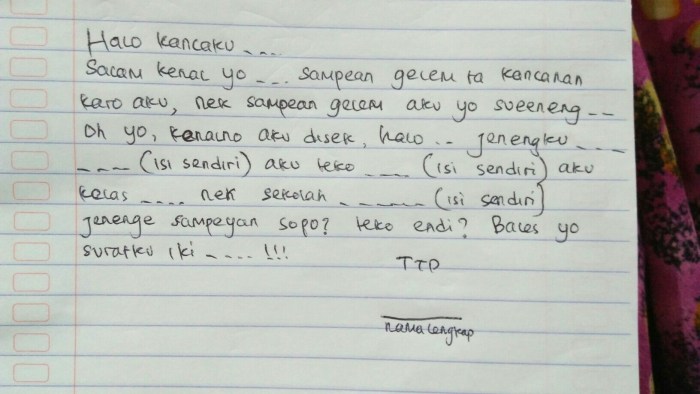 Halo kancaku ....
Salam kenal yo .... sampean gelem ta kancanan
karo aku, nek sampean gelem aku yo sueeneng --
Oh yo, kenalno aku disek, halo .. jenengku ....
.... (isi sendiri) aku teko .... (isi sendiri) aku
kelas .... nek sekolah ...... (isi sendiri)
jenenge sampeyan sopo? teko endi? Bales yo
suratku iki ..... !!!
TTD
nama lengkap